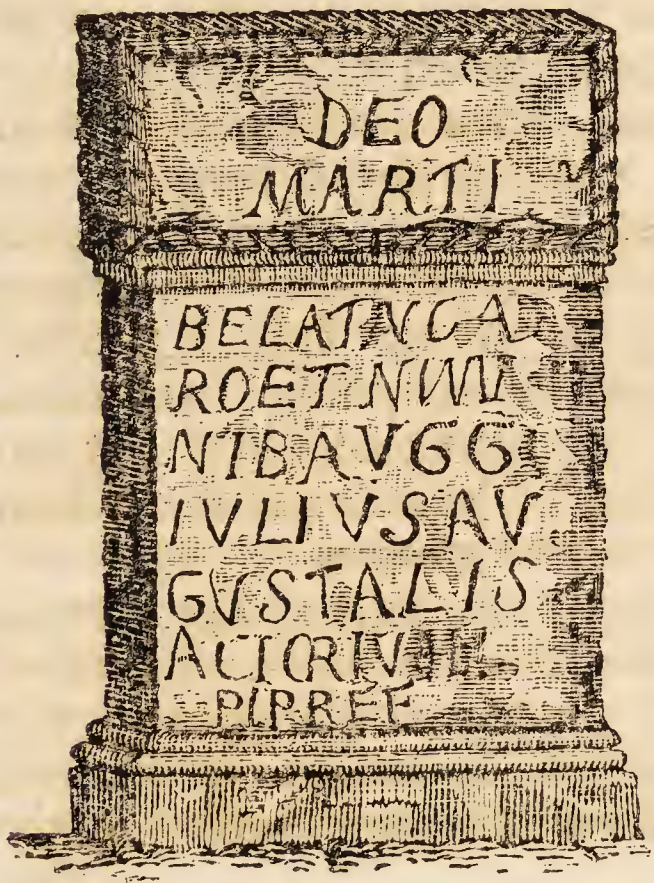 DEO
MARTI
BELATVCA
ROET NVMI
NIBAVGG
IVLIVSAV
GVSTALIS
ACTORIVLI
PIPREF